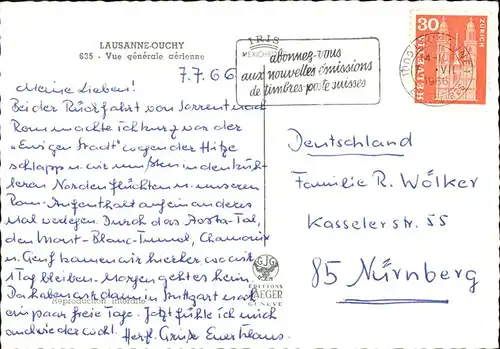 LAUSANNE-OUCHY
635 - Vue générale aérienne
7.7.66
Meine Lieben!
Bei der Rückfahrt von Sorrent nach
Rom machte ich kurz vor der
"Ewigen Stadt" wegen der Hitze
schlapp u. wir mußten in den küh-
leren Norden flüchten u. unseren
Rom-Aufenthalt auf ein anderes
Mal verlegen. Durch das Aosta-Tal,
den Mont-Blanc-Tunnel, Chamonix
u. Genf kamen wir hierher wo wir
1 Tag bleiben. Morgen geht es heim.
Da haben wir dann in Stuttgart noch
ein paar freie Tage. Jetzt fühle ich mich
auch wieder wohl. Herzl. Grüße Euer Hans.
Reproduction interdite
IRIS
MEXICHROME
EDITIONS
JAEGER
GENÈVE
abonnez-vous
aux nouvelles émissions
de timbres-poste suisses
30
ZÜRICH
HELVETIA
1966
Deutschland
Familie R. Wölker
Kasselerstr. 55
85 Nürnberg